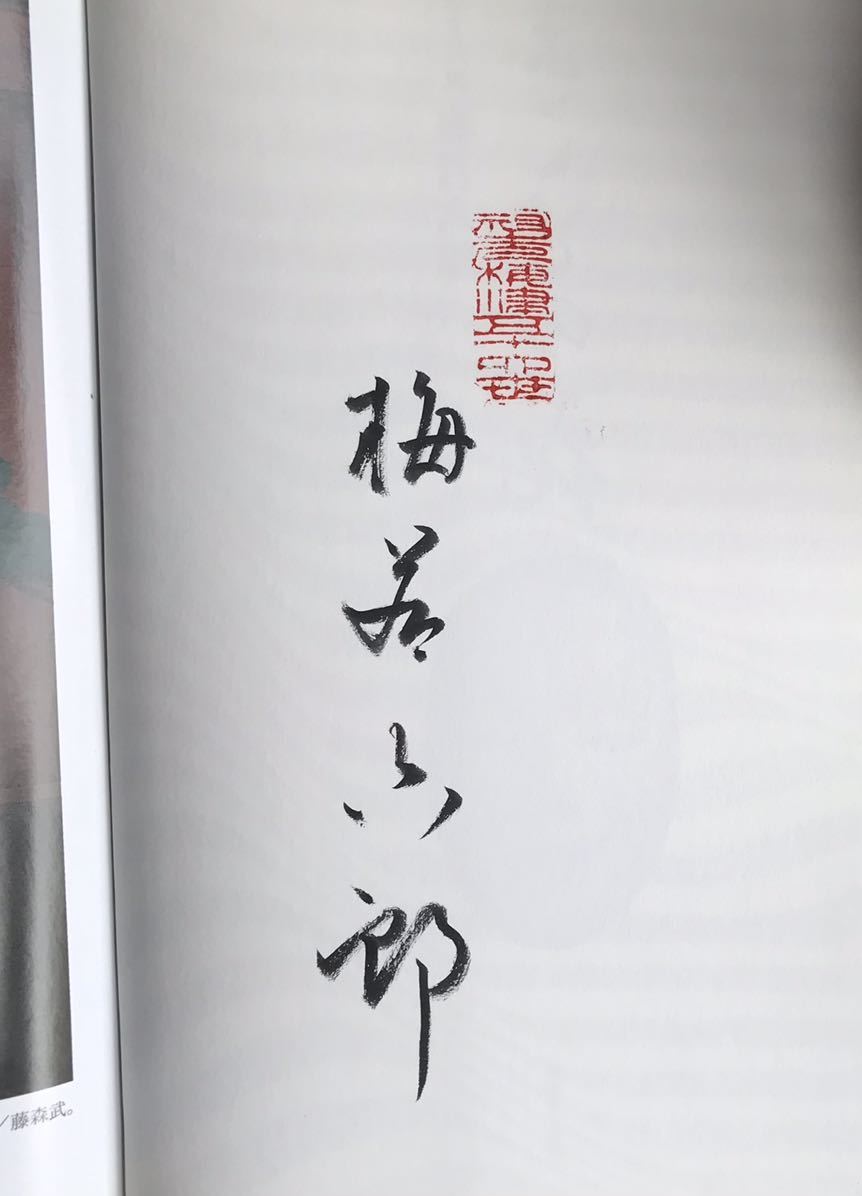 梅若六郎
／藤森武。